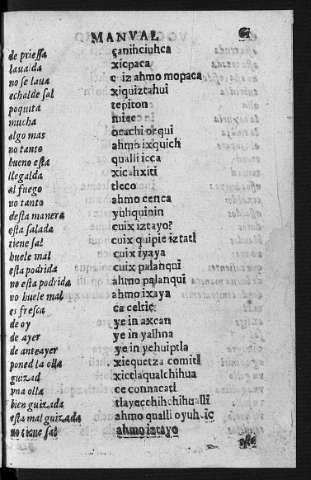 MANVAL
de priessa çanihciuhca
lauada xicpaca
no se laua c iz ahmo mopaca
echalde sal xiquiztahui
poquita tepiton
mucha miec
algo mas ocachi ocqui
no tanto ahmo ixquich
bueno esta qualli icca
llegalda xicahxiti
al fuego tleco
no tanto ahmo cenca
desta manera yuhquinin
esta salada cuix iztayo?
tiene sal cuix quipie iztatl
huele mal cuix iyaya
esta podrida cuix palanqui
no esta podrida ahmo palanqui
no huele mal ahmo ixaya
es fresca ca celtic
de oy ye in axcan
de ayer ye in yalhua
de anteayer ye in yehuiptla
poned la olla xicquetza comitl
guizad xictlaqualchihua
vna olla ce connacatl
bien guizada tlayecchihchihualli
esta mal guizada ahmo qualli oyuhçic
no tiene sal ahmo iztayo